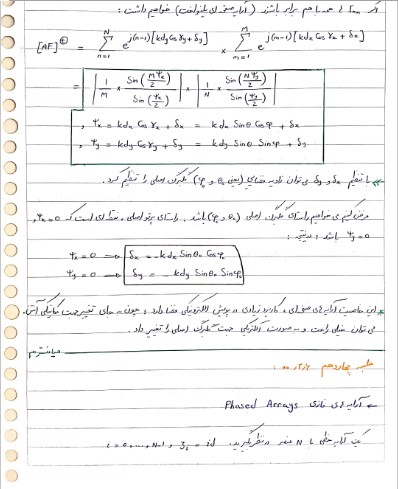 اگر I_mn ها همه با هم برابر باشند (آرایه صفحه‌ای یکنواخت) خواهیم داشت:
[AF]^① = Σ_{n=1}^{N} e^{j(n-1)[kdy Cosγy + δy]} × Σ_{m=1}^{M} e^{j(m-1)[kdx Cosγx + δx]}
= | 1/M × Sin(MΨx/2) / Sin(Ψx/2) | × | 1/N × Sin(NΨy/2) / Sin(Ψy/2) |
, Ψx = kdx Cosγx + δx = kdx Sinθ Cosφ + δx
, Ψy = kdy Cosγy + δy = kdy Sinθ Sinφ + δy
با تنظیم δx و δy می‌توان زاویه فضایی (یعنی θ₀ و φ₀) گلبرگ اصلی را تنظیم کرد.
فرض کنیم می‌خواهیم راستای گلبرگ اصلی (θ₀ و φ₀) باشد. راستای پرتو اصلی، نقطه‌ای است که Ψx=0,
Ψy=0 باشد؛
Ψx=0 → δx = -kdx Sinθ₀ Cosφ₀
Ψy=0 → δy = -kdy Sinθ₀ Sinφ₀
این خاصیت آرایه‌های صفحه‌ای، کاربرد زیادی در پویش الکترونیکی فضا دارد؛ چون به جای تغییر جهت مکانیکی آنتن،
می‌توان خیلی راحت و به صورت الکتریکی جهت گلبرگ اصلی را تغییر داد.
میانترم
جلسه چهاردهم
← آرایه‌های فازی Phased Arrays
یک آرایه خطی با N عنصر در نظر بگیرید. i = 0, ..., N-1 , z_i = id